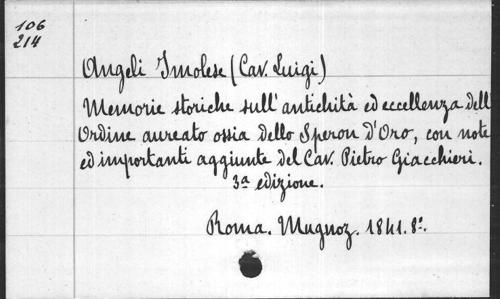 106
214
Angeli Imolese (Cav. Luigi)
Memorie storiche sull' antichità ed eccellenza dell'
Ordine aureato ossia dello Speron d'Oro, con note
ed importanti aggiunte del Cav. Pietro Giacchieri.
3a edizione.
Roma. Mugnoz. 1841. 8º.